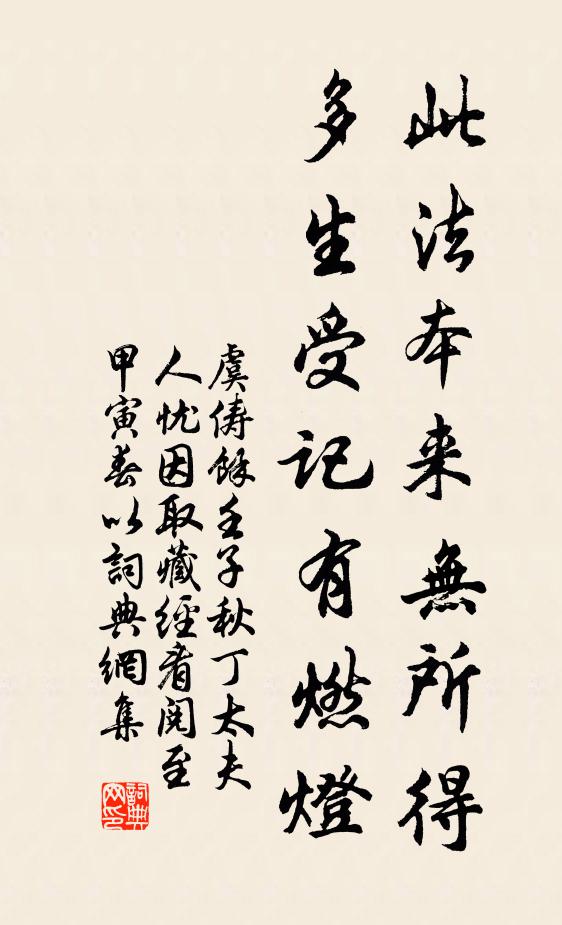 此法本来無所得
多生受記有燃燈
虞儔餘壬子秋丁太夫
人忧因取藏經看閱至
甲寅春以詞典網集
詞典网印